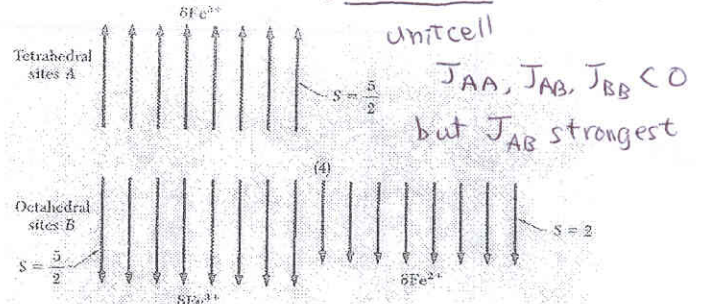 8Fe³⁺
unitcell
Tetrahedral
sites A
S = 5/2
J_AA, J_AB, J_BB < 0
but J_AB strongest
(4)
Octahedral
sites B
S = 2
S = 5/2
8Fe³⁺
8Fe²⁺